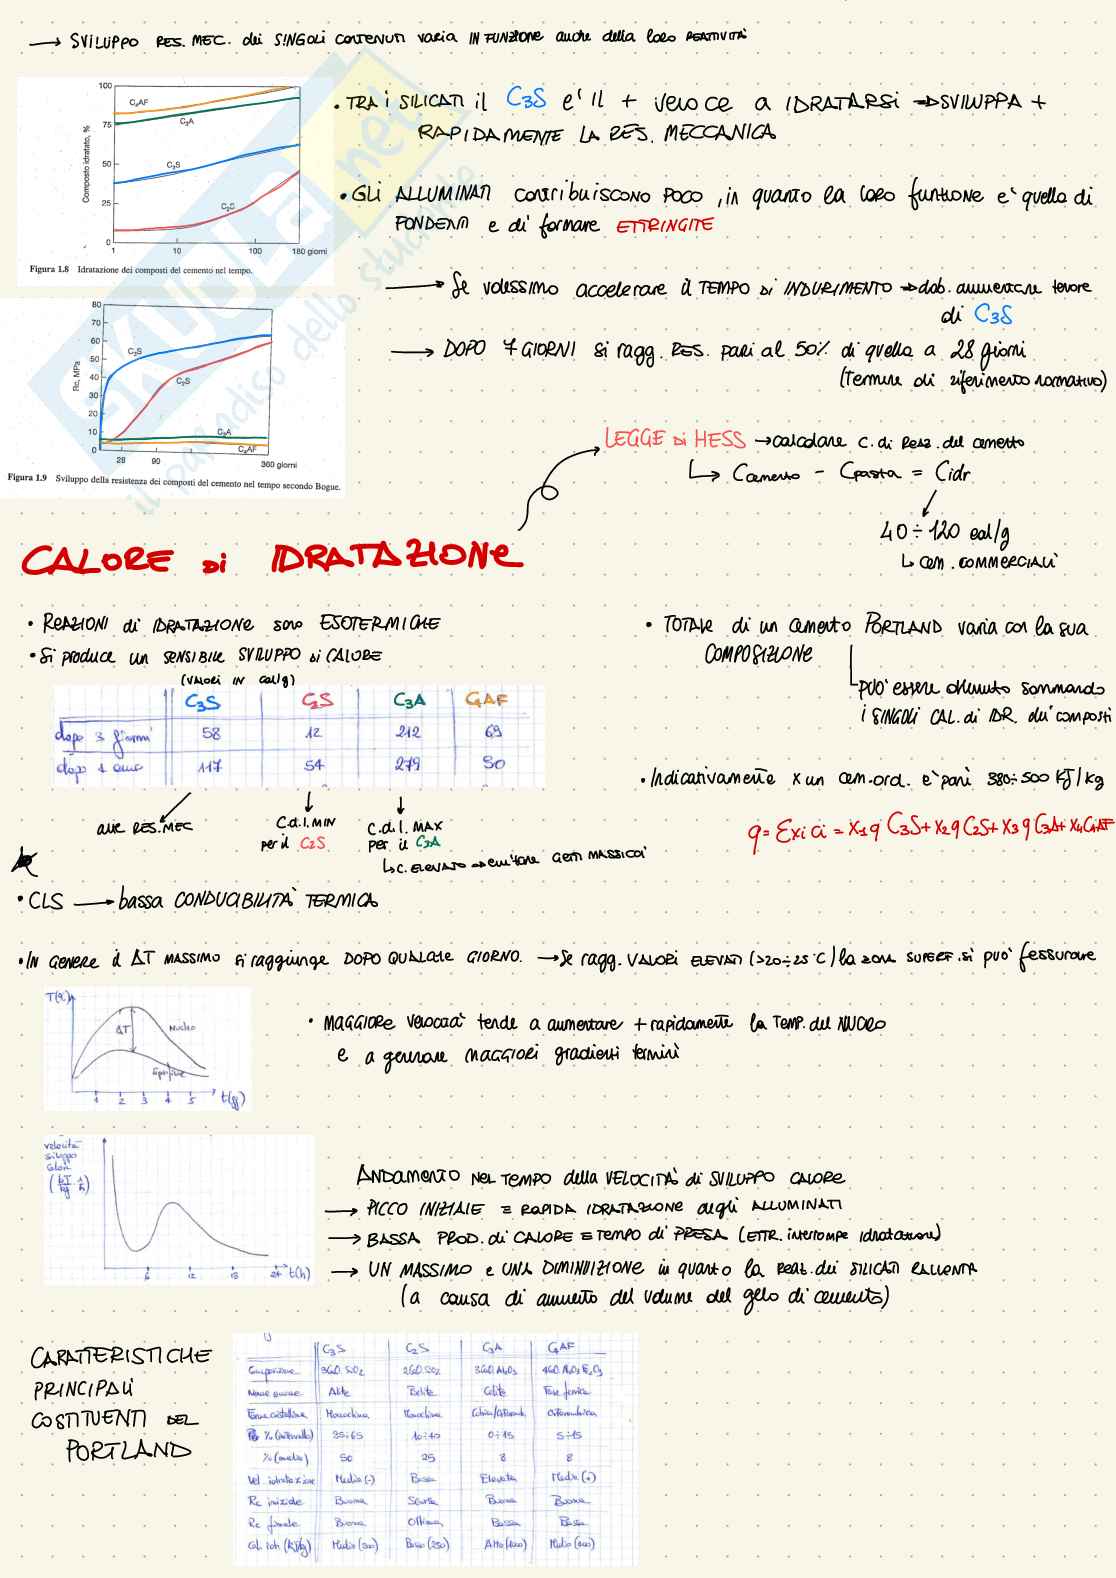 → SVILUPPO RES. MEC. dei SINGOLI CONTENUTI varia IN FUNZIONE anche della loro REATTIVITÀ
100
75
50
25
0
Composto idratato, %
C₄AF
C₃A
C₃S
C₂S
1 10 100 180 giorni
Figura 1.8 Idratazione dei composti del cemento nel tempo.
• TRA I SILICATI il C3S e' Il + veloce a IDRATARSI → SVILUPPA +
RAPIDAMENTE LA RES. MECCANICA
• GLI ALLUMINATI contribuiscono POCO, in quanto la loro funzione e' quella di
FONDENTI e di formare ETTRINGITE
→ Se volessimo accelerare il TEMPO di INDURIMENTO → dob. aumentare tenore
di C3S
→ DOPO 7 GIORNI si ragg. RES. pari al 50% di quella a 28 giorni
(Termine di riferimento normativo)
80
70
60
50
40
30
20
10
0
Rc, MPa
C₃S
C₂S
C₃A
C₄AF
28 90 360 giorni
Figura 1.9 Sviluppo della resistenza dei composti del cemento nel tempo secondo Bogue.
SKUOLA.net
il paradiso dello studente
LEGGE di HESS → calcolare C. di Reaz. del cemento
↳ Ccemento - Cpasta = Cidr
40÷120 cal/g
↳ cem. COMMERCIALI
CALORE di IDRATAZIONE
• REAZIONI di IDRATAZIONE sono ESOTERMICHE
• Si produce un SENSIBILE SVILUPPO di CALORE
(VALORI IN cal/g)
C3S C2S C3A C4AF
dopo 3 giorni 58 12 212 69
dopo 1 anno 117 54 279 90
RES. MEC
C.d.I. MIN
per il C2S
C.d.I. MAX
per il C3A
↳ C. ELEVATO → evitare GETTI MASSICCI
• TOTALE di un cemento PORTLAND varia con la sua
COMPOSIZIONE
può essere ottenuto sommando
i SINGOLI CAL. di IDR. dei composti
• Indicativamente x un cem. ord. e' pari 380÷500 KJ/kg
q = Σxi ci = x1 q C3S + x2 q C2S + x3 q C3A + x4 C4AF
• CLS → bassa CONDUCIBILITÀ TERMICA
• IN GENERE il ΔT MASSIMO si raggiunge DOPO QUALCHE GIORNO. → Se ragg. VALORI ELEVATI (>20÷25°C) la zona SUPERF. si può fessurare
T(°C)
ΔT
Nucleo
Superficie
1 2 3 4 5 t(gg)
• MAGGIORE velocità tende a aumentare + rapidamente la TEMP. del NUCLEO
e a generare MAGGIORI gradienti termici
velocità
sviluppo
calore
(kJ/kg · 1/h)
6 12 18 24 t(h)
ANDAMENTO NEL TEMPO della VELOCITÀ di SVILUPPO CALORE
→ PICCO INIZIALE = RAPIDA IDRATAZIONE degli ALLUMINATI
→ BASSA PROD. di CALORE = TEMPO di PRESA (ETTR. interrompe idratazione)
→ UN MASSIMO e UNA DIMINUIZIONE in quanto la Reaz. dei SILICATI RALLENTA
(a causa di aumento del volume del gelo di cemento)
CARATTERISTICHE
PRINCIPALI
COSTITUENTI DEL
PORTLAND
C3S C2S C3A C4AF
Composizione 3CaO.SiO2 2CaO.SiO2 3CaO.Al2O3 4CaO.Al2O3.Fe2O3
Nome comune Alite Belite Celite Fase ferrica
Forma cristallina Monoclina Monoclina Cubica/Ortoromb. Ortorombica
% (intervallo) 35÷65 10÷40 0÷15 5÷15
% (medio) 50 25 8 8
Vel. idratazione Media (-) Bassa Elevata Media (+)
Rc iniziale Buona Scarsa Buona Buona
Rc finale Buona Ottima Bassa Bassa
Cal. idr. (kJ/kg) Medio (500) Basso (250) Alto Medio